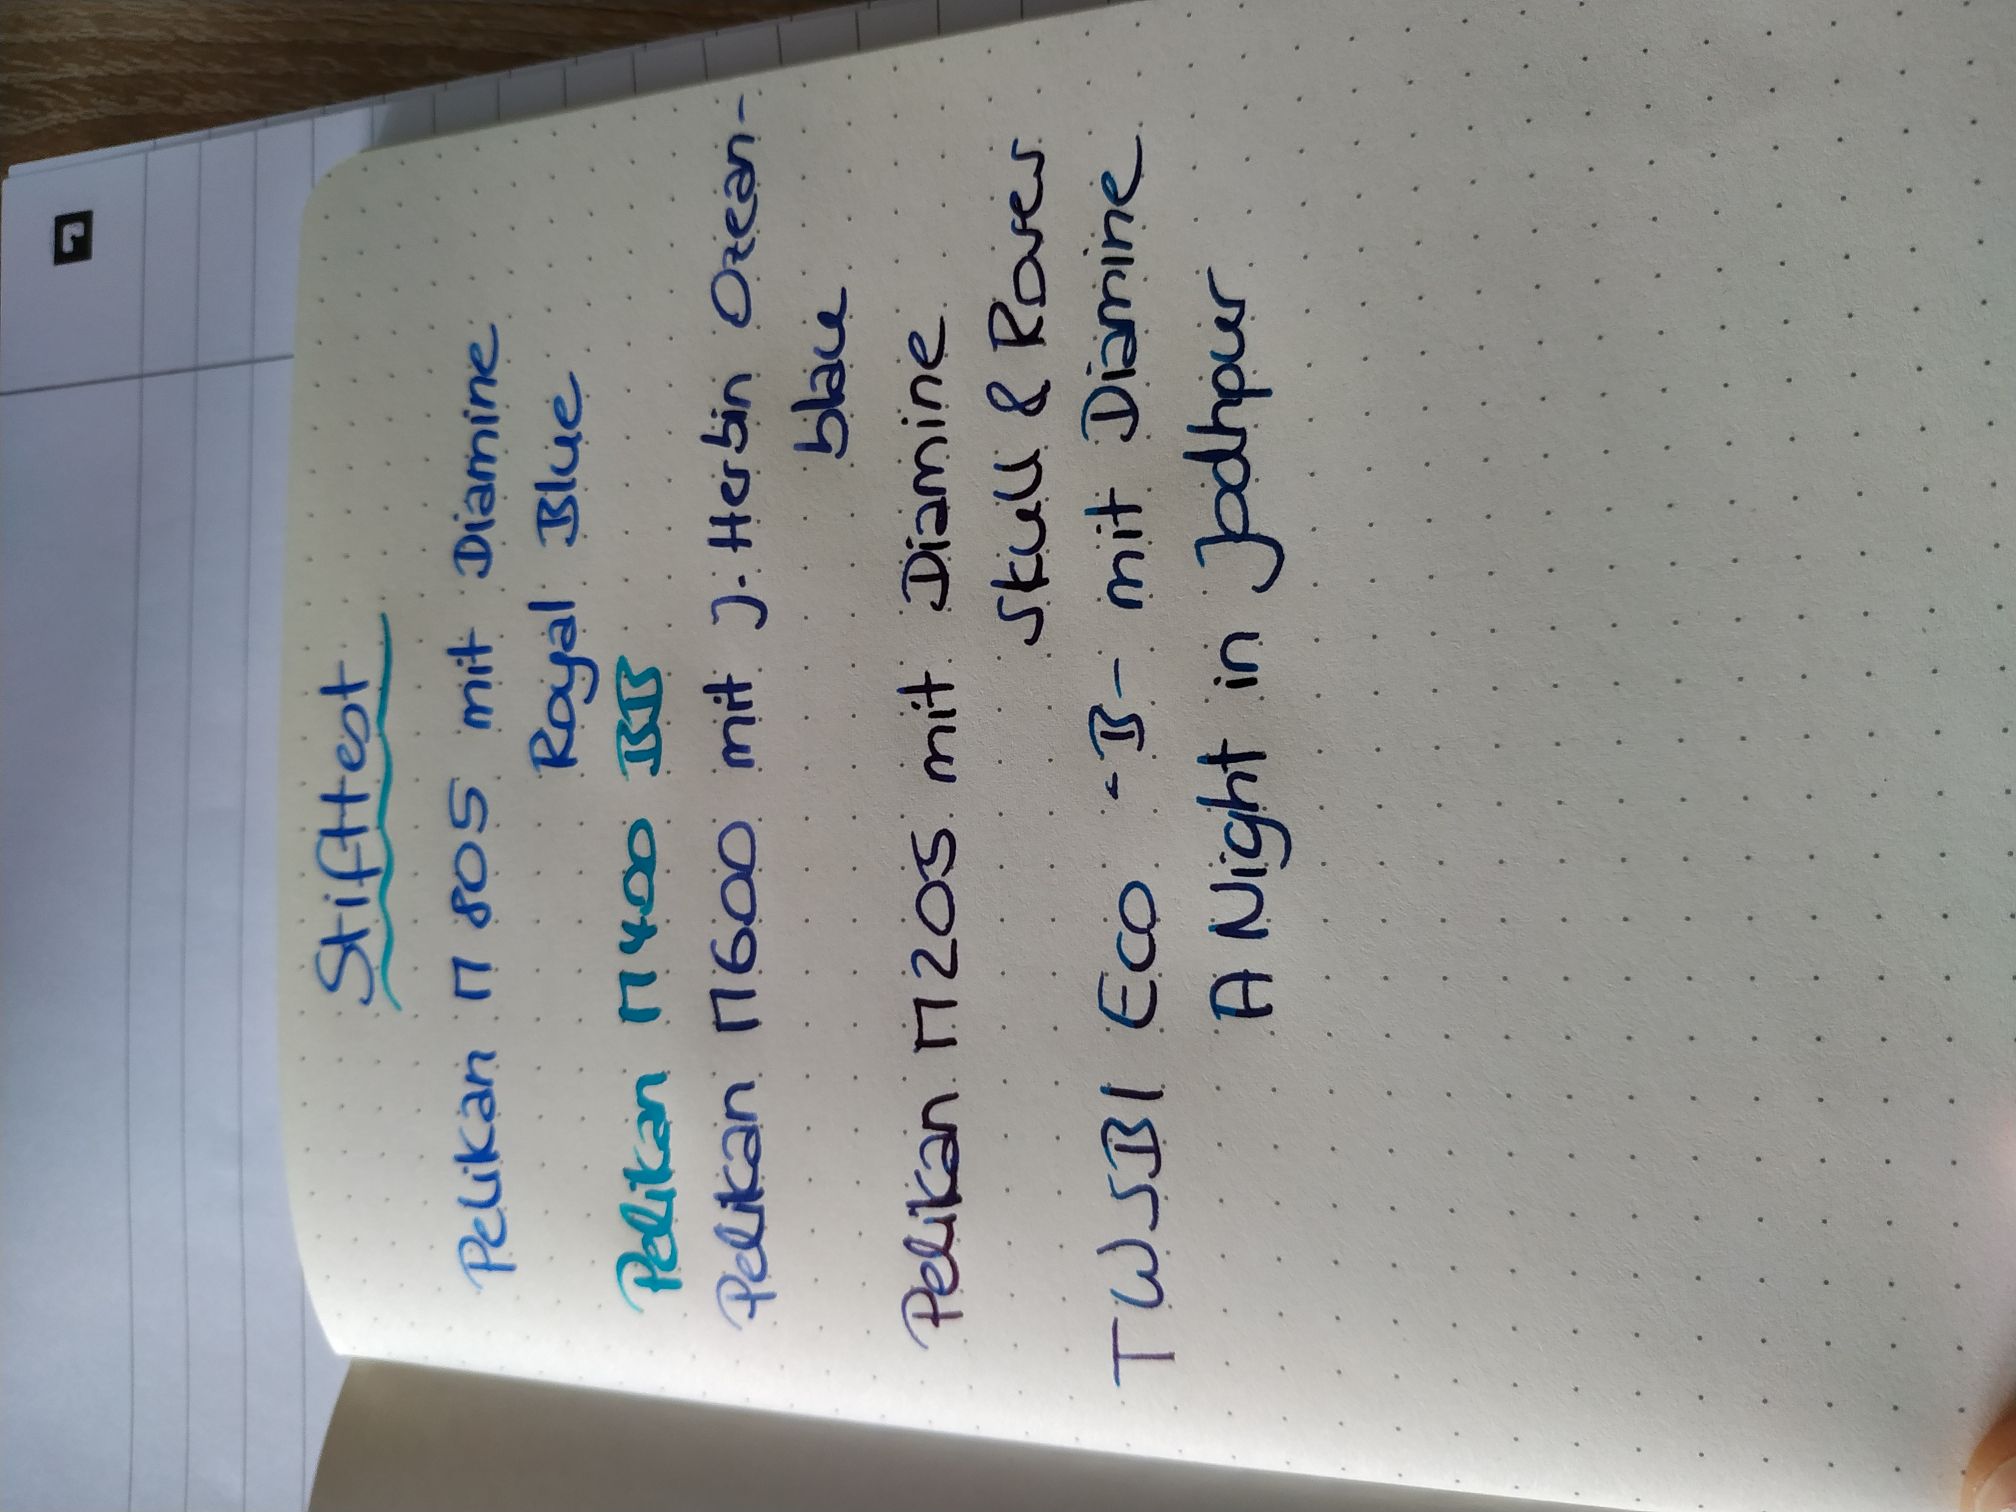 Stifttest
Pelikan M 805 mit Diamine
Royal Blue
Pelikan M400 BB
Pelikan M600 mit J. Herbin Ozean-
blau
Pelikan M205 mit Diamine
Skull & Roses
TWSBI Eco -B- mit Diamine
A Night in Jodhpur